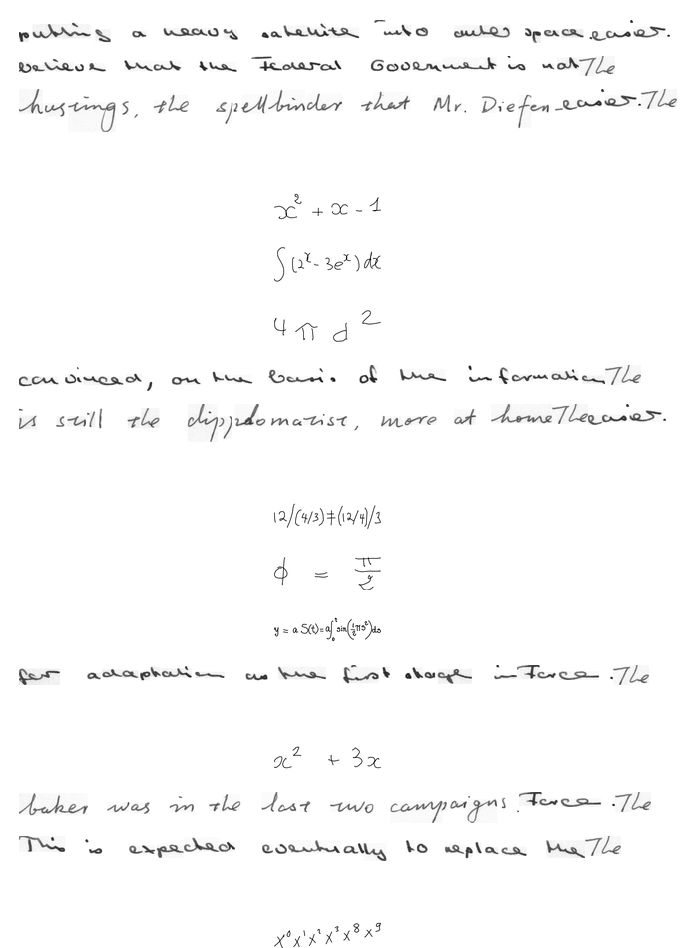 putting a heavy satellite into outer space easier.
believe that the Federal Government is not The
hustings, the spellbinder that Mr. Diefen_easier. The
x² + x - 1
∫(2ˣ - 3eˣ) dx
4 π d²
convinced, on the basis of the information The
is still the dippdomatist, more at home The easier.
12/(4/3)≠(12/4)/3
ϕ = π/2
y = a S(t) = a∫₀ᵗ sin(½πs²)ds
for adaptation as the first stage in Force . The
x² + 3x
baker was in the last two campaigns. Force . The
This is expected eventually to replace the The
x⁰ x¹ x² x³ x⁸ x⁹